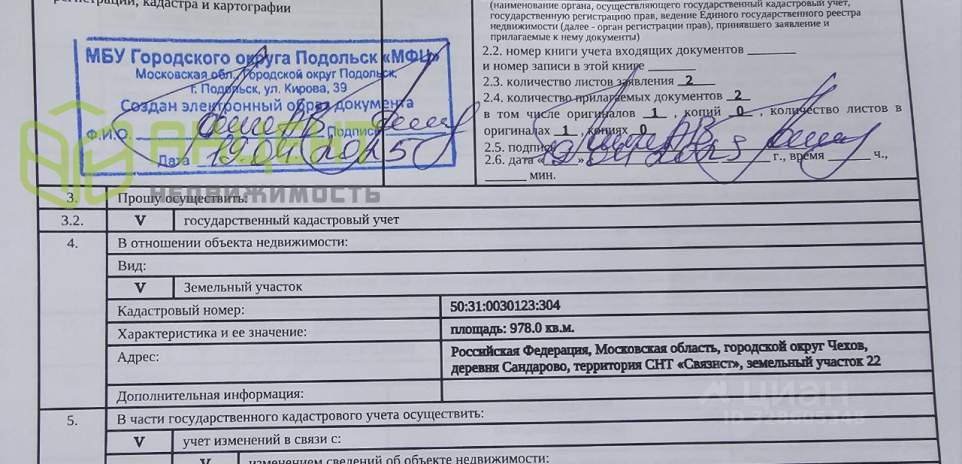 регистрации, кадастра и картографии
(наименование органа, осуществляющего государственный кадастровый учет,
государственную регистрацию прав, ведение Единого государственного реестра
недвижимости (далее - орган регистрации прав), принявшего заявление и
прилагаемые к нему документы)
2.2. номер книги учета входящих документов
и номер записи в этой книге
2.3. количество листов заявления 2
2.4. количество прилагаемых документов 2
в том числе оригиналов 1 , копий 0 , количество листов в
оригиналах 1 , копиях 0
2.5. подпись
2.6. дата « » г., время ч.,
мин.
МБУ Городского округа Подольск «МФЦ»
Московская обл., Городской округ Подольск,
г. Подольск, ул. Кирова, 39
Создан электронный образ документа
Ф.И.О. Подпись
Дата 19.04.2025
НЕДВИЖИМОСТЬ
3. Прошу осуществить:
3.2. V государственный кадастровый учет
4. В отношении объекта недвижимости:
Вид:
V Земельный участок
Кадастровый номер: 50:31:0030123:304
Характеристика и ее значение: площадь: 978.0 кв.м.
Адрес: Российская Федерация, Московская область, городской округ Чехов,
деревня Сандарово, территория СНТ «Связист», земельный участок 22
Дополнительная информация:
ЦИАН
5. В части государственного кадастрового учета осуществить:
V учет изменений в связи с:
V изменением сведений об объекте недвижимости: